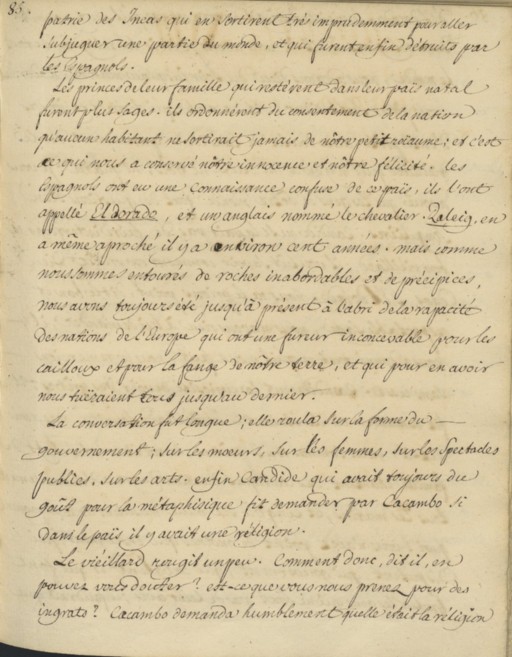 86.
patrie des Incas qui en sortirent très imprudemment pour aller
subjuguer une partie du monde, et qui furent enfin détruits par
les Espagnols.
Les princes de leur famille qui restèrent dans leur païs natal
furent plus sages. ils ordonnèrent du consentement de la nation
qu'aucun habitant ne sortirait jamais de nôtre petit roiaume; et c'est
ce qui nous a conservé nôtre innocence et nôtre félicité. les
Espagnols ont eu une connaissance confuse de ce païs, ils l'ont
appellé El dorado, et un anglais nommé le chevalier Raleig, en
a même aproché il y a environ cent années. mais comme
nous sommes entourés de roches inabordables et de précipices,
nous avons toujours été jusqu'à présent à l'abri de la rapacité
des nations de l'Europe qui ont une fureur inconcevable pour les
cailloux et pour la fange de nôtre terre, et qui pour en avoir
nous tüeraient tous jusqu'au dernier.
La conversation fut longue; elle roula sur la forme du
gouvernement; sur les moeurs, sur les femmes, sur les spectacles
publics, sur les arts. enfin Candide qui avait toujours du
goût pour la métaphisique fit demander par Cacambo si
dans le païs il y avait une réligion.
Le viéillard rougit un peu. Comment donc, dit il, en
pouvez vous douter? est-ce que vous nous prenez pour des
ingrats? Cacambo demanda humblement quelle était la réligion